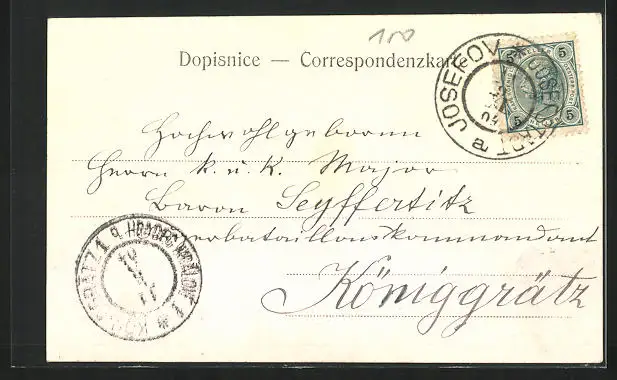 150
Dopisnice — Correspondenzkarte
JOSEFOV * JOSEFSTADT
5 5
5 5
Hochwohlgeboren
Herrn k. u. k. Major
Baron Seyffertitz
bataillonskommandant
Königgrätz
HRADEC KRÁLOVÉ 1